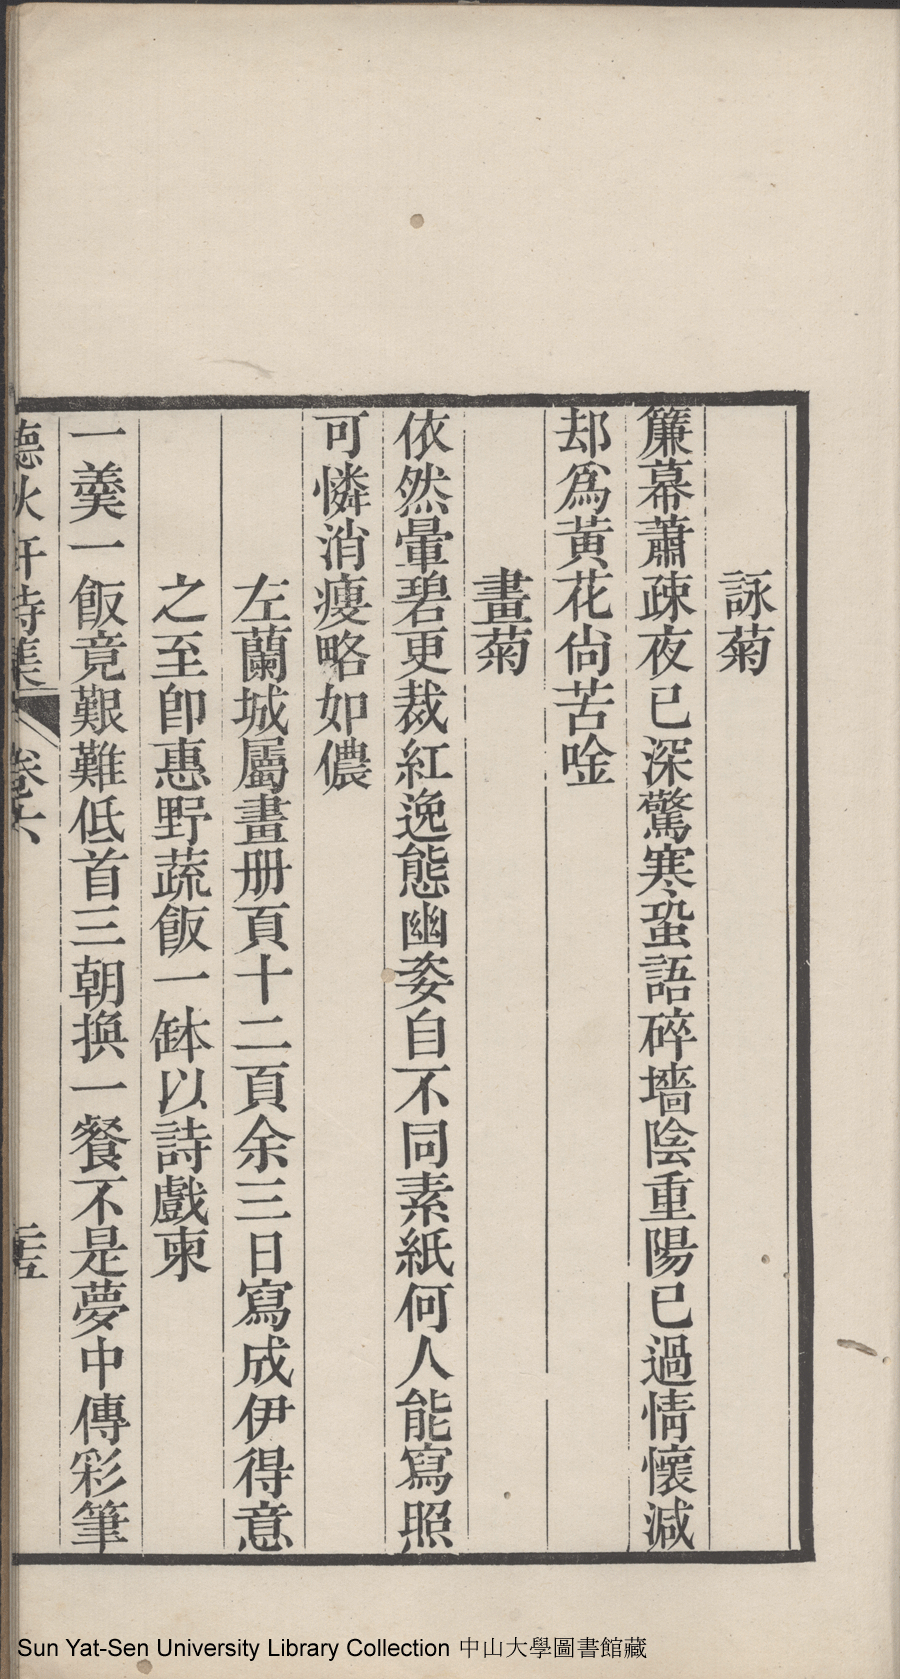 詠菊
簾幕蕭疎夜已深驚寒蛩語碎墻陰重陽已過情懷減
却爲黃花尙苦唫
畫菊
依然暈碧更裁紅逸態幽姿自不同素紙何人能寫照
可憐消瘦略如儂
左蘭城屬畫册頁十二頁余三日寫成伊得意
之至卽惠野蔬飯一缽以詩戲柬
一羮一飯竟艱難低首三朝換一餐不是夢中傳彩筆
聽秋軒詩集 卷六 二五
Sun Yat-Sen University Library Collection 中山大學圖書館藏